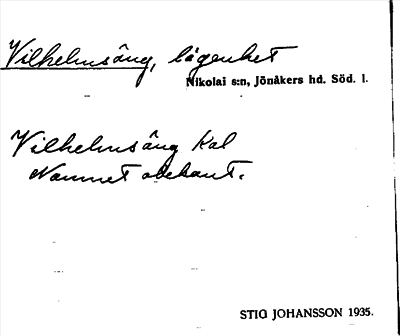 Vilhelmsäng, lägenhet
Nikolai s:n, Jönåkers hd. Söd. l.
Vilhelmsäng Kal
Namnet obekant.
STIG JOHANSSON 1935.